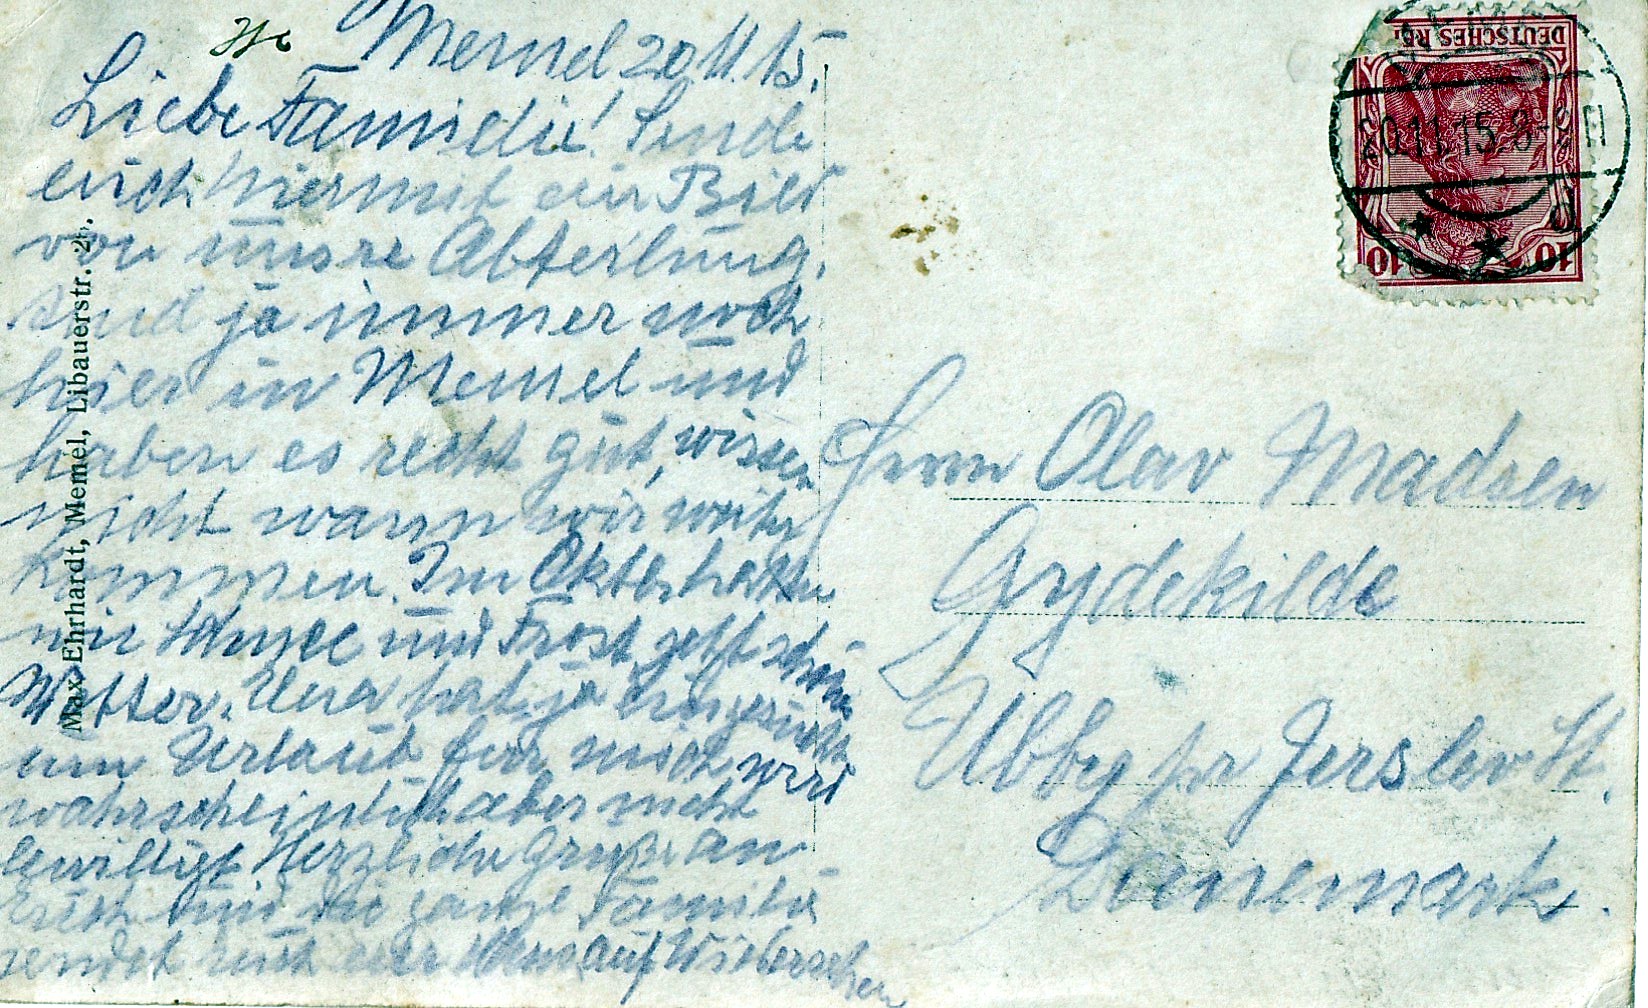 Memel 20 11. 15.
Liebe Familie! Sende
euch hiermit ein Bild
von unsre Abteilung.
sind ja immer noch
hier in Memel und
haben es recht gut, wissen
nicht wann wir weiter
kommen. Im Oktbr hatten
wir Schnee und Frost, jetzt schön
Wetter. hat ja eingereicht
um Urlaub für mich wird
wahrscheinlich aber nicht
bewilligt Herzliche Grüße an
Euch und die ganze Familie
sendet euch auf Wiedersehen
Max Ehrhardt, Memel, Libauerstr. 26.
DEUTSCHES REICH
10 10
20.11.15. 8-9
d
Herrn Olav Madsen
Gydekilde
Ubby pr Jerslev St.
Daenemark.